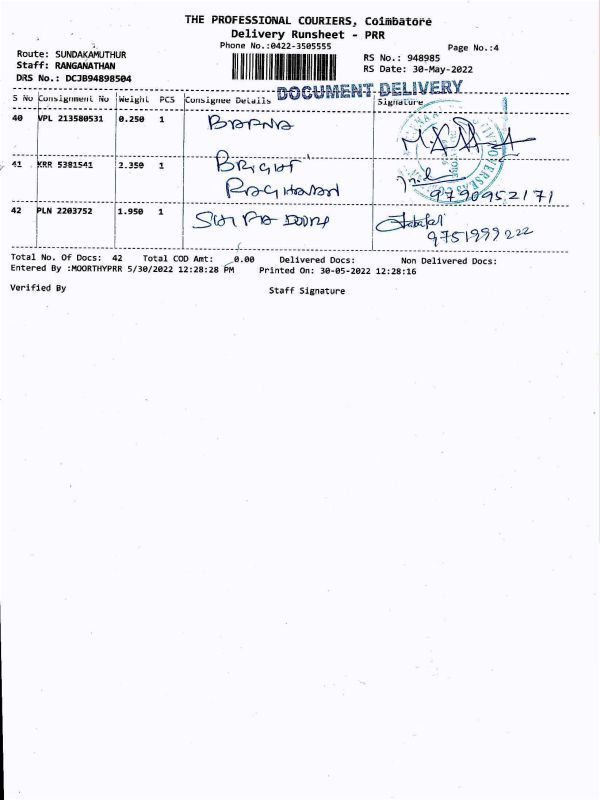 THE PROFESSIONAL COURIERS, Coimbatore
Delivery Runsheet - PRR
Phone No.:0422-3505555
Page No.:4
Route: SUNDAKAMUTHUR
Staff: RANGANATHAN
DRS No.: DCJB94898504
RS No.: 948985
RS Date: 30-May-2022
DOCUMENT DELIVERY
S No Consignment No Weight PCS Consignee Details Signature
40 VPL 213580531 0.250 1 BAFNA
41 KRR 5381541 2.350 1 BRIGHT
RAGHAVAN
9790952171
42 PLN 2203752 1.950 1
9751999222
Total No. Of Docs: 42 Total COD Amt: 0.00 Delivered Docs: Non Delivered Docs:
Entered By :MOORTHYPRR 5/30/2022 12:28:28 PM Printed On: 30-05-2022 12:28:16
Verified By Staff Signature